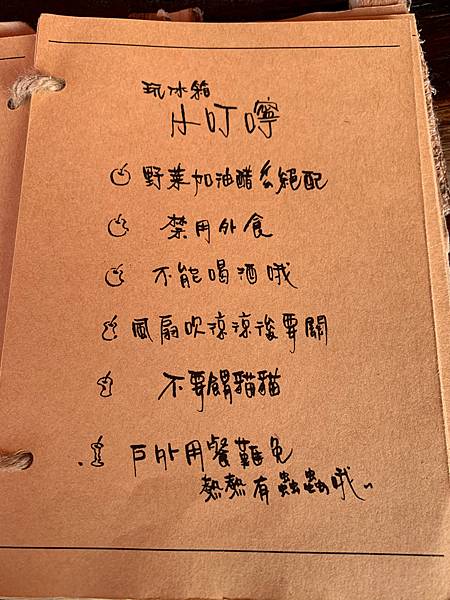 玩冰箱
小叮嚀
野菜加油醋多絕配
禁用外食
不能喝酒哦
風扇吹涼涼後要關
不要餵貓貓
戶外用餐難免
熱熱有蟲蟲哦~